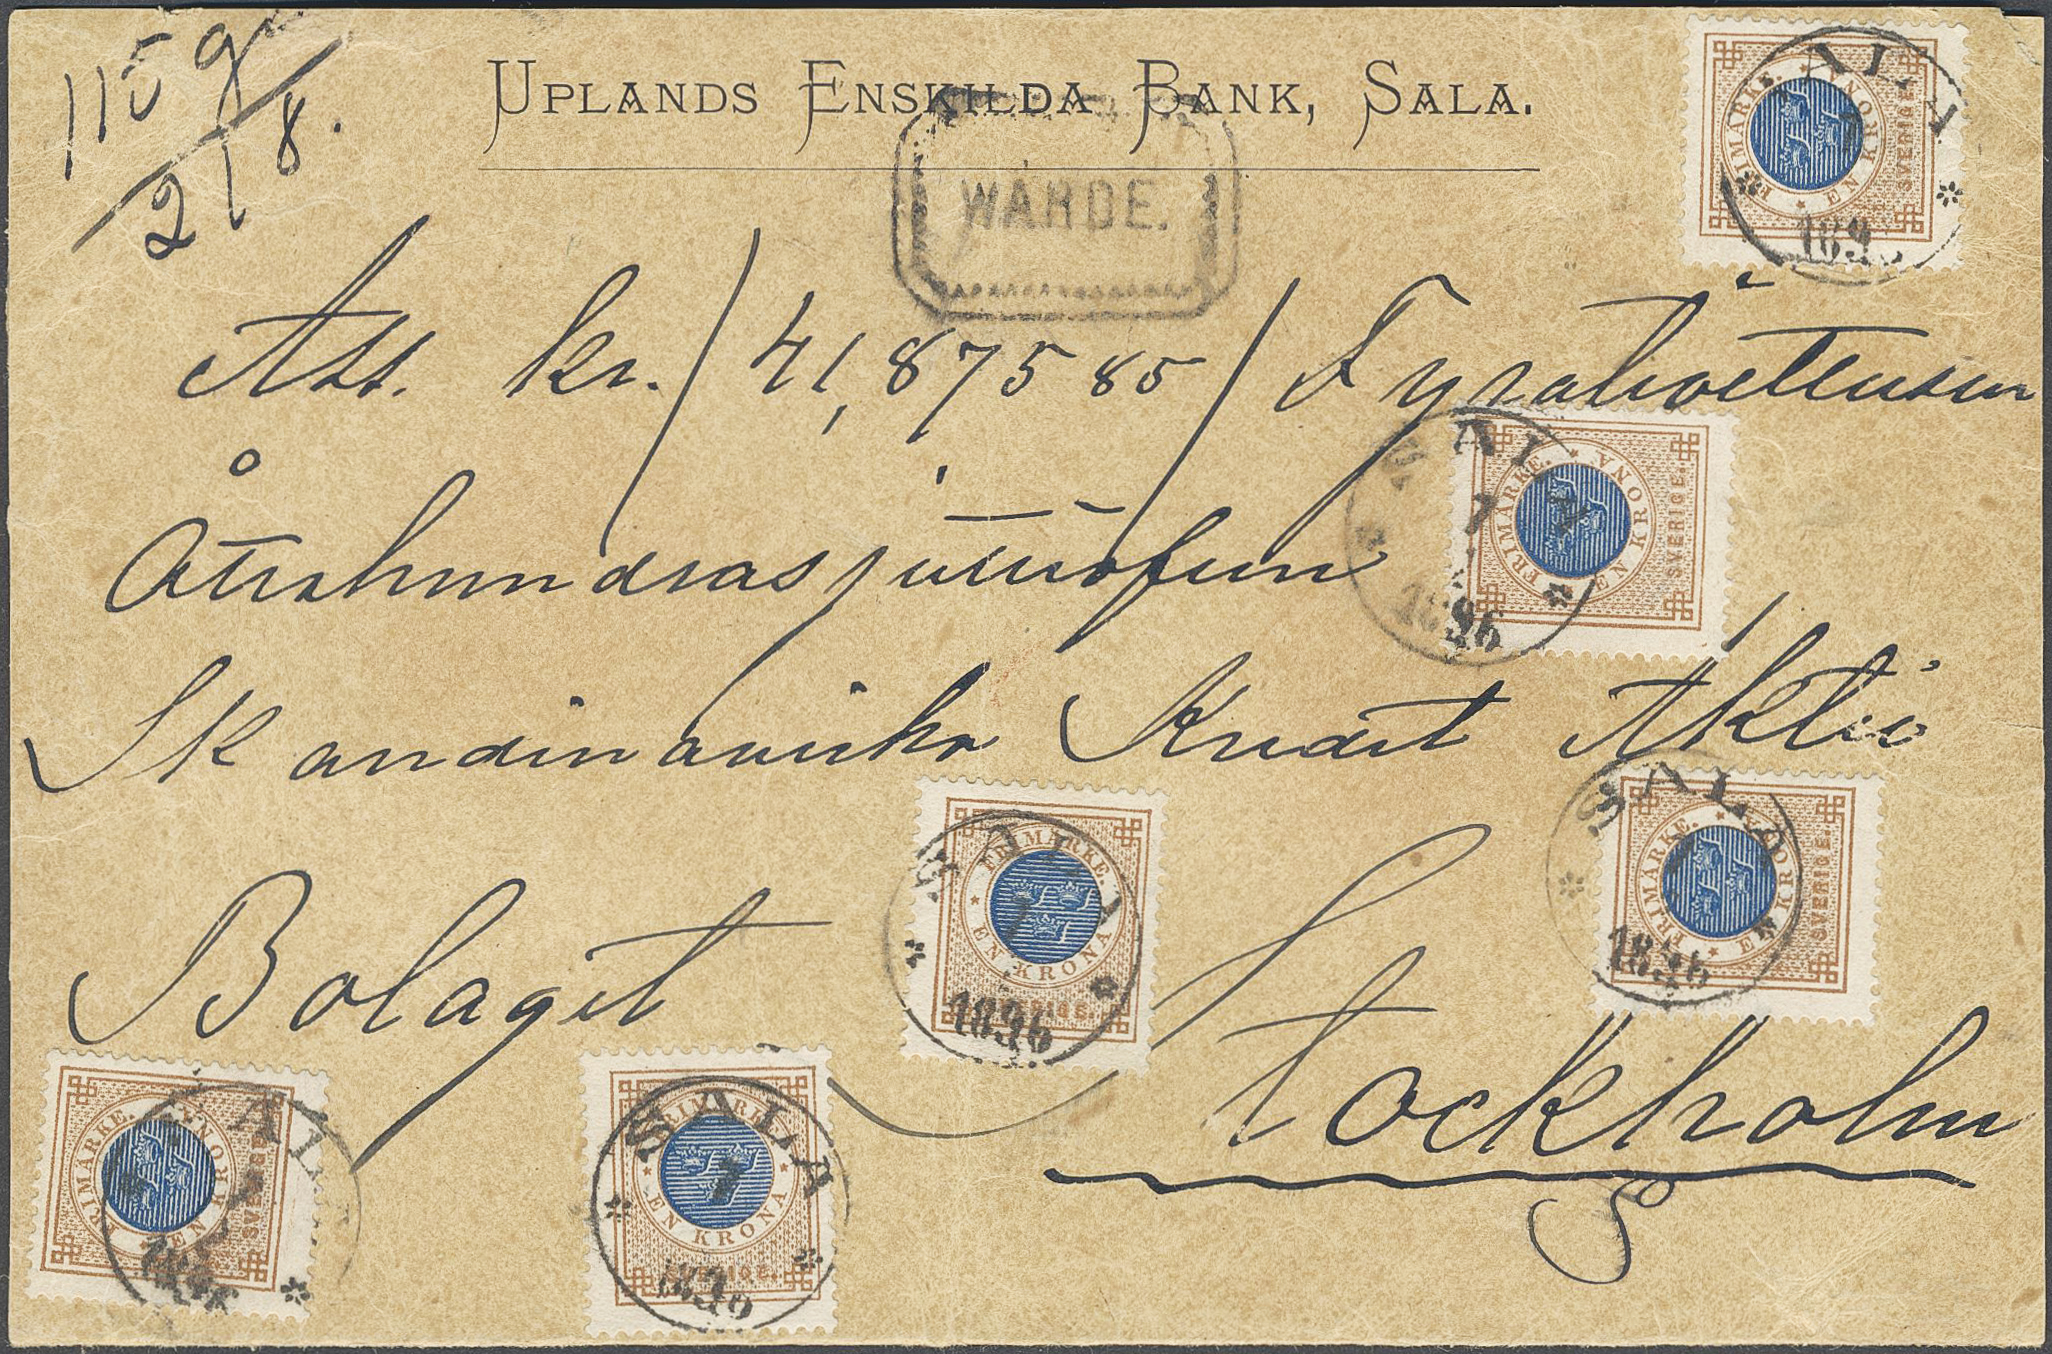 115 g
2/8.
UPLANDS ENSKILDA BANK, SALA.
WÄRDE.
FRIMÄRKE. EN KRONA
SVERIGE.
SALA
189
Att. kr. /41,875 85/ Fyratioettusen
Åttahundrasjuttiofem
FRIMÄRKE. EN KRONA
SVERIGE.
SALA
7
1896
Skandinaviska Kredit Aktie
Bolaget
FRIMÄRKE. EN KRONA
SVERIGE.
SALA
7
1896
FRIMÄRKE. EN KRONA
SVERIGE.
SALA
7
1896
Stockholm
FRIMÄRKE. EN KRONA
SVERIGE.
SALA
FRIMÄRKE. EN KRONA
SVERIGE.
SALA
7
1896